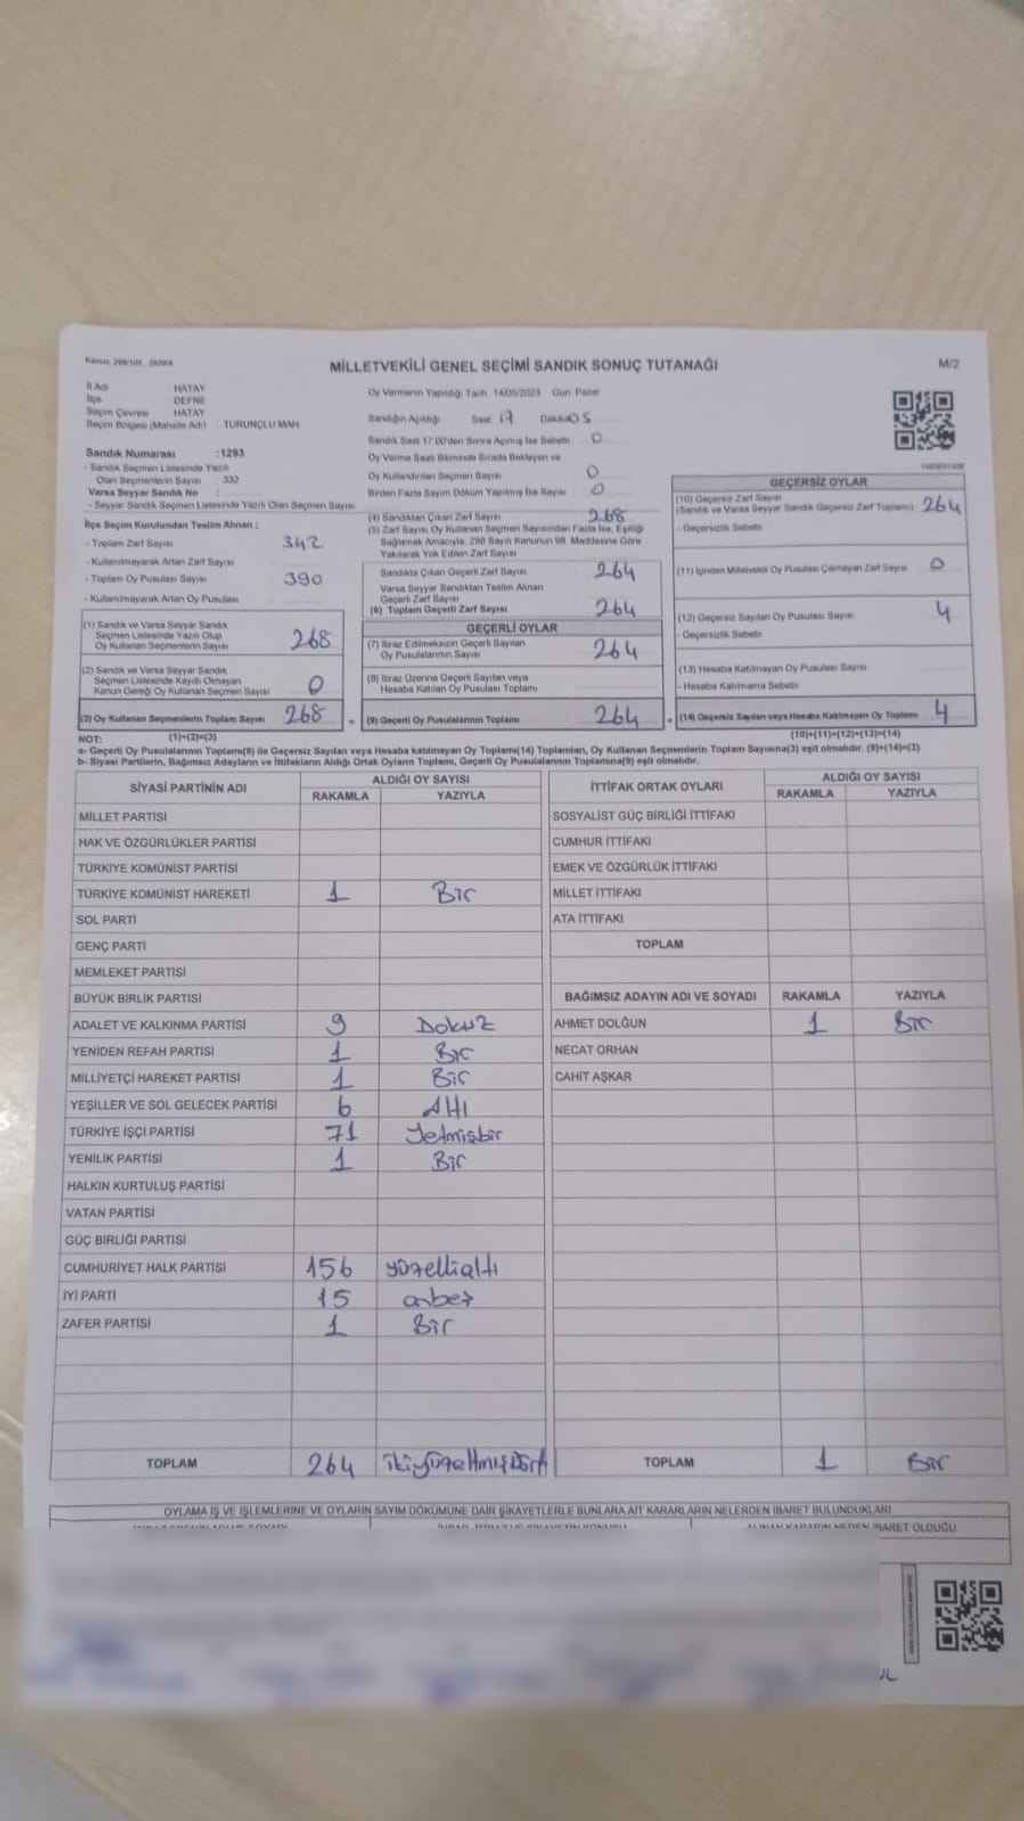 MİLLETVEKİLİ GENEL SEÇİMİ SANDIK SONUÇ TUTANAĞI
M/2
İl Adı HATAY
İlçe DEFNE
Seçim Çevresi HATAY
Seçim Bölgesi (Mahalle Adı) TURUNÇLU MAH
Sandık Numarası :1293
- Sandık Seçmen Listesinde Yazılı
Olan Seçmenlerin Sayısı 332
Varsa Seyyar Sandık No :
- Seyyar Sandık Seçmen Listesinde Yazılı Olan Seçmen Sayısı
İlçe Seçim Kurulundan Teslim Alınan :
- Toplam Zarf Sayısı 342
- Kullanılmayarak Artan Zarf Sayısı
- Toplam Oy Pusulası Sayısı 390
- Kullanılmayarak Artan Oy Pusulası
(1) Sandık ve Varsa Seyyar Sandık
Seçmen Listesinde Yazılı Olup
Oy Kullanan Seçmenlerin Sayısı 268
(2) Sandık ve Varsa Seyyar Sandık
Seçmen Listesinde Kaydı Olmayan
Kanun Gereği Oy Kullanan Seçmen Sayısı 0
(3) Oy Kullanan Seçmenlerin Toplam Sayısı 268
(1)+(2)=(3)
Oy Vermenin Yapıldığı Tarih 14/05/2023 Gün Pazar
Sandığın Açıldığı Saat 17 Dakika 05
Sandık Saat 17.00'den Sonra Açılmış İse Sebebi 0
Oy Verme Saati Bitiminde Sırada Bekleyen ve
Oy Kullandırılan Seçmen Sayısı 0
Birden Fazla Sayım Döküm Yapılmış İse Sayısı 0
(4) Sandıktan Çıkan Zarf Sayısı 268
(5) Zarf Sayısı, Oy Kullanan Seçmen Sayısından Fazla İse, Eşitliği
Sağlamak Amacıyla, 298 Sayılı Kanunun 98. Maddesine Göre
Yakılarak Yok Edilen Zarf Sayısı
Sandıkta Çıkan Geçerli Zarf Sayısı 264
Varsa Seyyar Sandıktan Teslim Alınan
Geçerli Zarf Sayısı
(6) Toplam Geçerli Zarf Sayısı 264
GEÇERLİ OYLAR
(7) İtiraz Edilmeksizin Geçerli Sayılan
Oy Pusulalarının Sayısı 264
(8) İtiraz Üzerine Geçerli Sayılan veya
Hesaba Katılan Oy Pusulası Toplamı
(9) Geçerli Oy Pusulalarının Toplamı 264
GEÇERSİZ OYLAR
(10) Geçersiz Zarf Sayısı
(Sandık ve Varsa Seyyar Sandık Geçersiz Zarf Toplamı) 264
- Geçersizlik Sebebi
(11) İçinden Milletvekili Oy Pusulası Çıkmayan Zarf Sayısı 0
(12) Geçersiz Sayılan Oy Pusulası Sayısı 4
- Geçersizlik Sebebi
(13) Hesaba Katılmayan Oy Pusulası Sayısı
- Hesaba Katılmama Sebebi
(14) Geçersiz Sayılan veya Hesaba Katılmayan Oy Toplamı 4
(10)+(11)+(12)+(13)=(14)
NOT:
a- Geçerli Oy Pusulalarının Toplamı(9) ile Geçersiz Sayılan veya Hesaba katılmayan Oy Toplamı(14) Toplamları, Oy Kullanan Seçmenlerin Toplam Sayısına(3) eşit olmalıdır. (9)+(14)=(3)
b- Siyasi Partilerin, Bağımsız Adayların ve İttifakların Aldığı Ortak Oyların Toplamı, Geçerli Oy Pusulalarının Toplamına(9) eşit olmalıdır.
SİYASİ PARTİNİN ADI ALDIĞI OY SAYISI
RAKAMLA YAZIYLA
MİLLET PARTİSİ
HAK VE ÖZGÜRLÜKLER PARTİSİ
TÜRKİYE KOMÜNİST PARTİSİ
TÜRKİYE KOMÜNİST HAREKETİ 1 Bir
SOL PARTİ
GENÇ PARTİ
MEMLEKET PARTİSİ
BÜYÜK BİRLİK PARTİSİ
ADALET VE KALKINMA PARTİSİ 9 Dokuz
YENİDEN REFAH PARTİSİ 1 Bir
MİLLİYETÇİ HAREKET PARTİSİ 1 Bir
YEŞİLLER VE SOL GELECEK PARTİSİ 6 Altı
TÜRKİYE İŞÇİ PARTİSİ 71 Yetmişbir
YENİLİK PARTİSİ 1 Bir
HALKIN KURTULUŞ PARTİSİ
VATAN PARTİSİ
GÜÇ BİRLİĞİ PARTİSİ
CUMHURİYET HALK PARTİSİ 156 yüzellialtı
İYİ PARTİ 15 onbeş
ZAFER PARTİSİ 1 Bir
TOPLAM 264 ikiyüzaltmışdört
İTTİFAK ORTAK OYLARI ALDIĞI OY SAYISI
RAKAMLA YAZIYLA
SOSYALİST GÜÇ BİRLİĞİ İTTİFAKI
CUMHUR İTTİFAKI
EMEK VE ÖZGÜRLÜK İTTİFAKI
MİLLET İTTİFAKI
ATA İTTİFAKI
TOPLAM
BAĞIMSIZ ADAYIN ADI VE SOYADI RAKAMLA YAZIYLA
AHMET DOLĞUN 1 Bir
NECAT ORHAN
CAHİT AŞKAR
TOPLAM 1 Bir
OYLAMA İŞ VE İŞLEMLERİNE VE OYLARIN SAYIM DÖKÜMÜNE DAİR ŞİKAYETLERLE BUNLARA AİT KARARLARIN NELERDEN İBARET BULUNDUKLARI
İBARET OLDUĞU